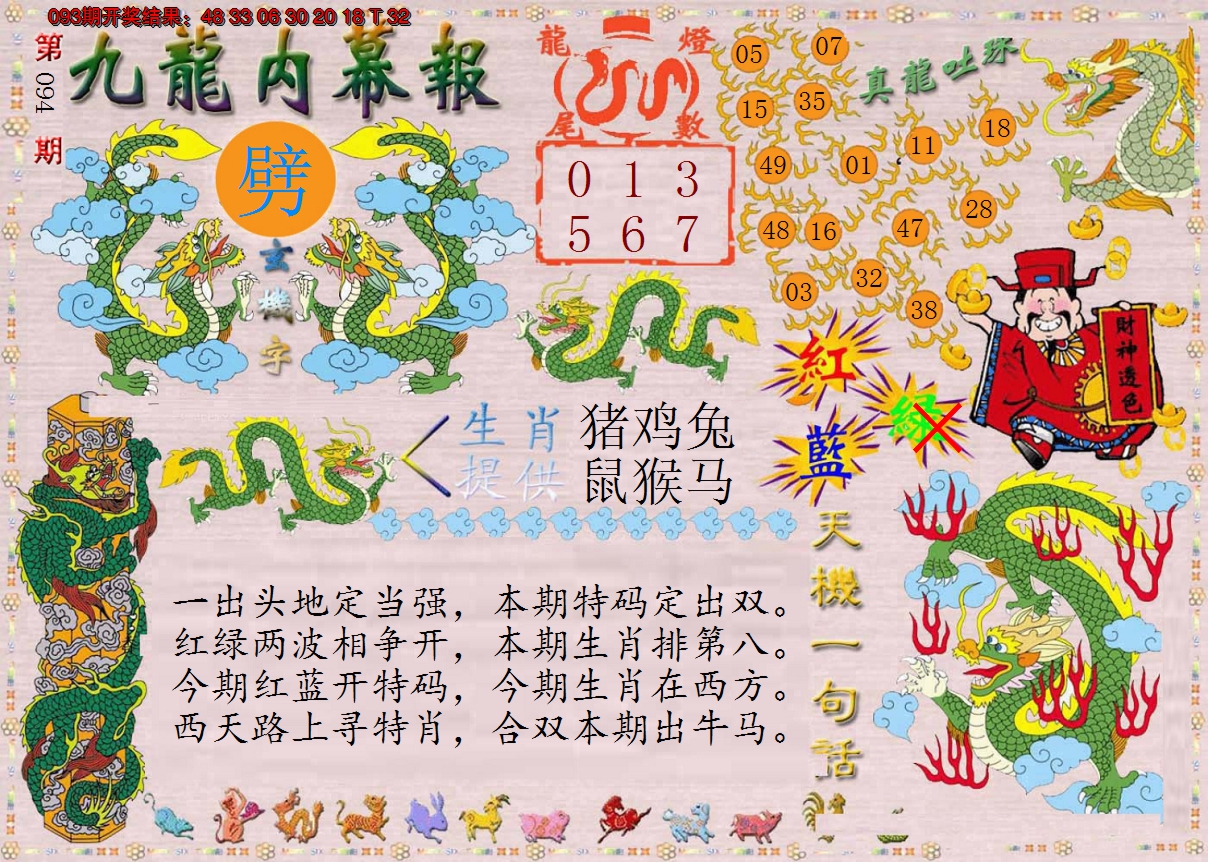 093期开奖结果：48 33 06 30 20 18 T 32
第 094 期
九龍内幕報
劈
玄機字
龍燈
尾數
0 1 3
5 6 7
真龍吐珠
05 07
15 35
49 01 11 18
48 16 47 28
03 32 38
財神透色
紅
綠
藍
生肖 猪鸡兔
提供 鼠猴马
天機一句话
一出头地定当强，本期特码定出双。
红绿两波相争开，本期生肖排第八。
今期红蓝开特码，今期生肖在西方。
西天路上寻特肖，合双本期出牛马。